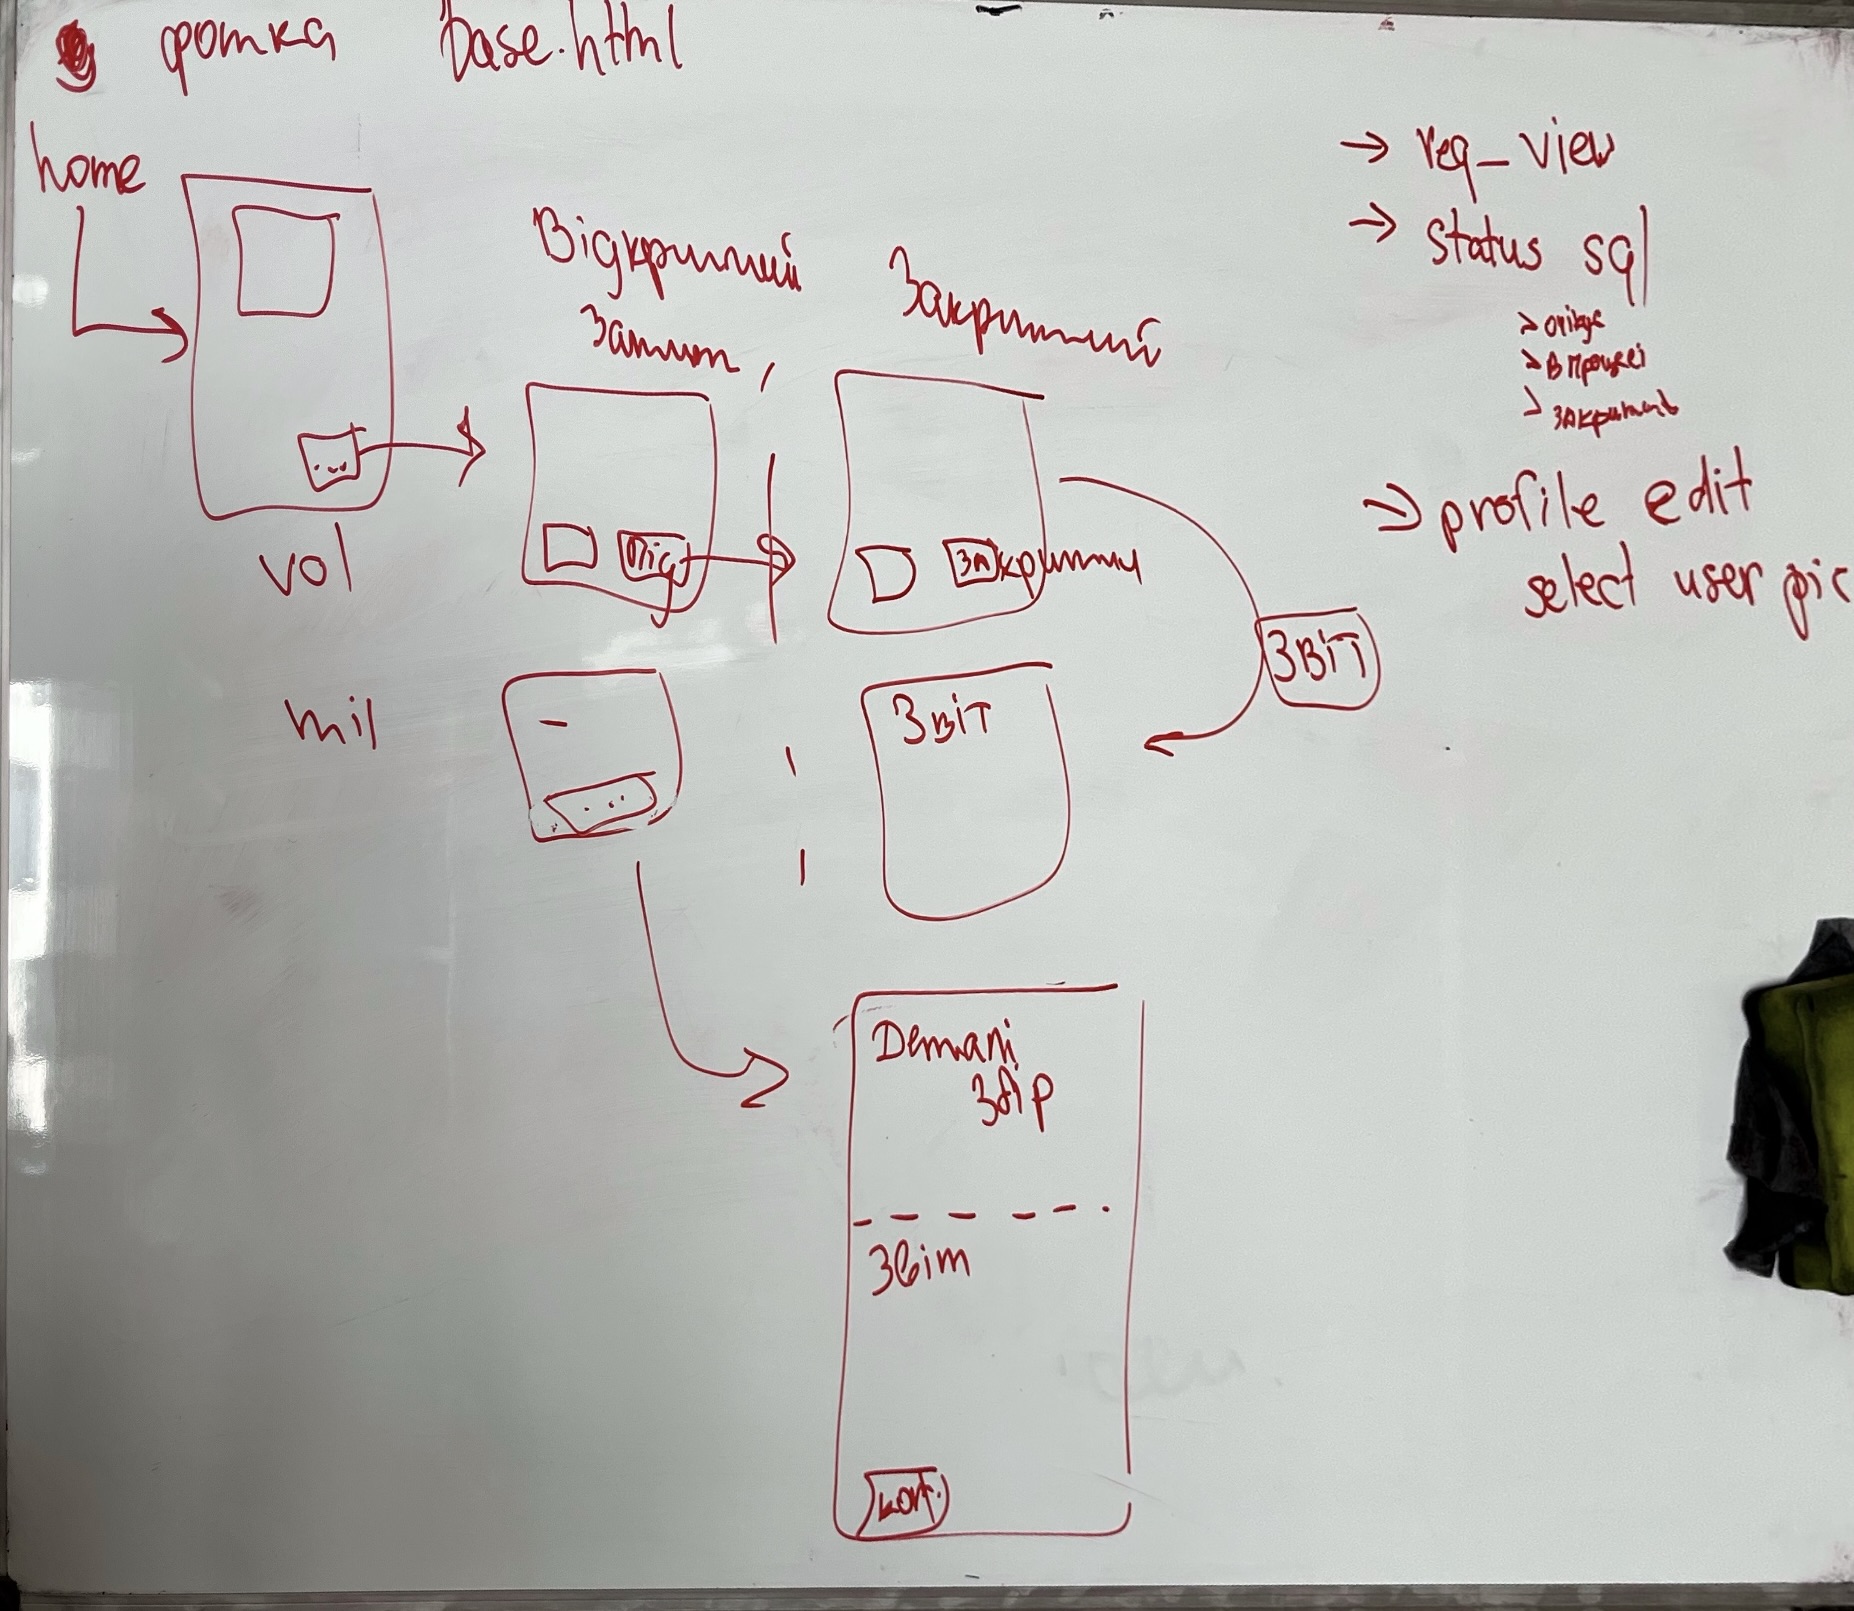 фотка base.html
home
Відкритий
Запит
Закритий
vol
Закрити
mil
Звіт
Звіт
Деталі
збір
Звіт
конт.
→ req_view
→ status sql
> очікує
> В процесі
> закритий
→ profile edit
select user pic